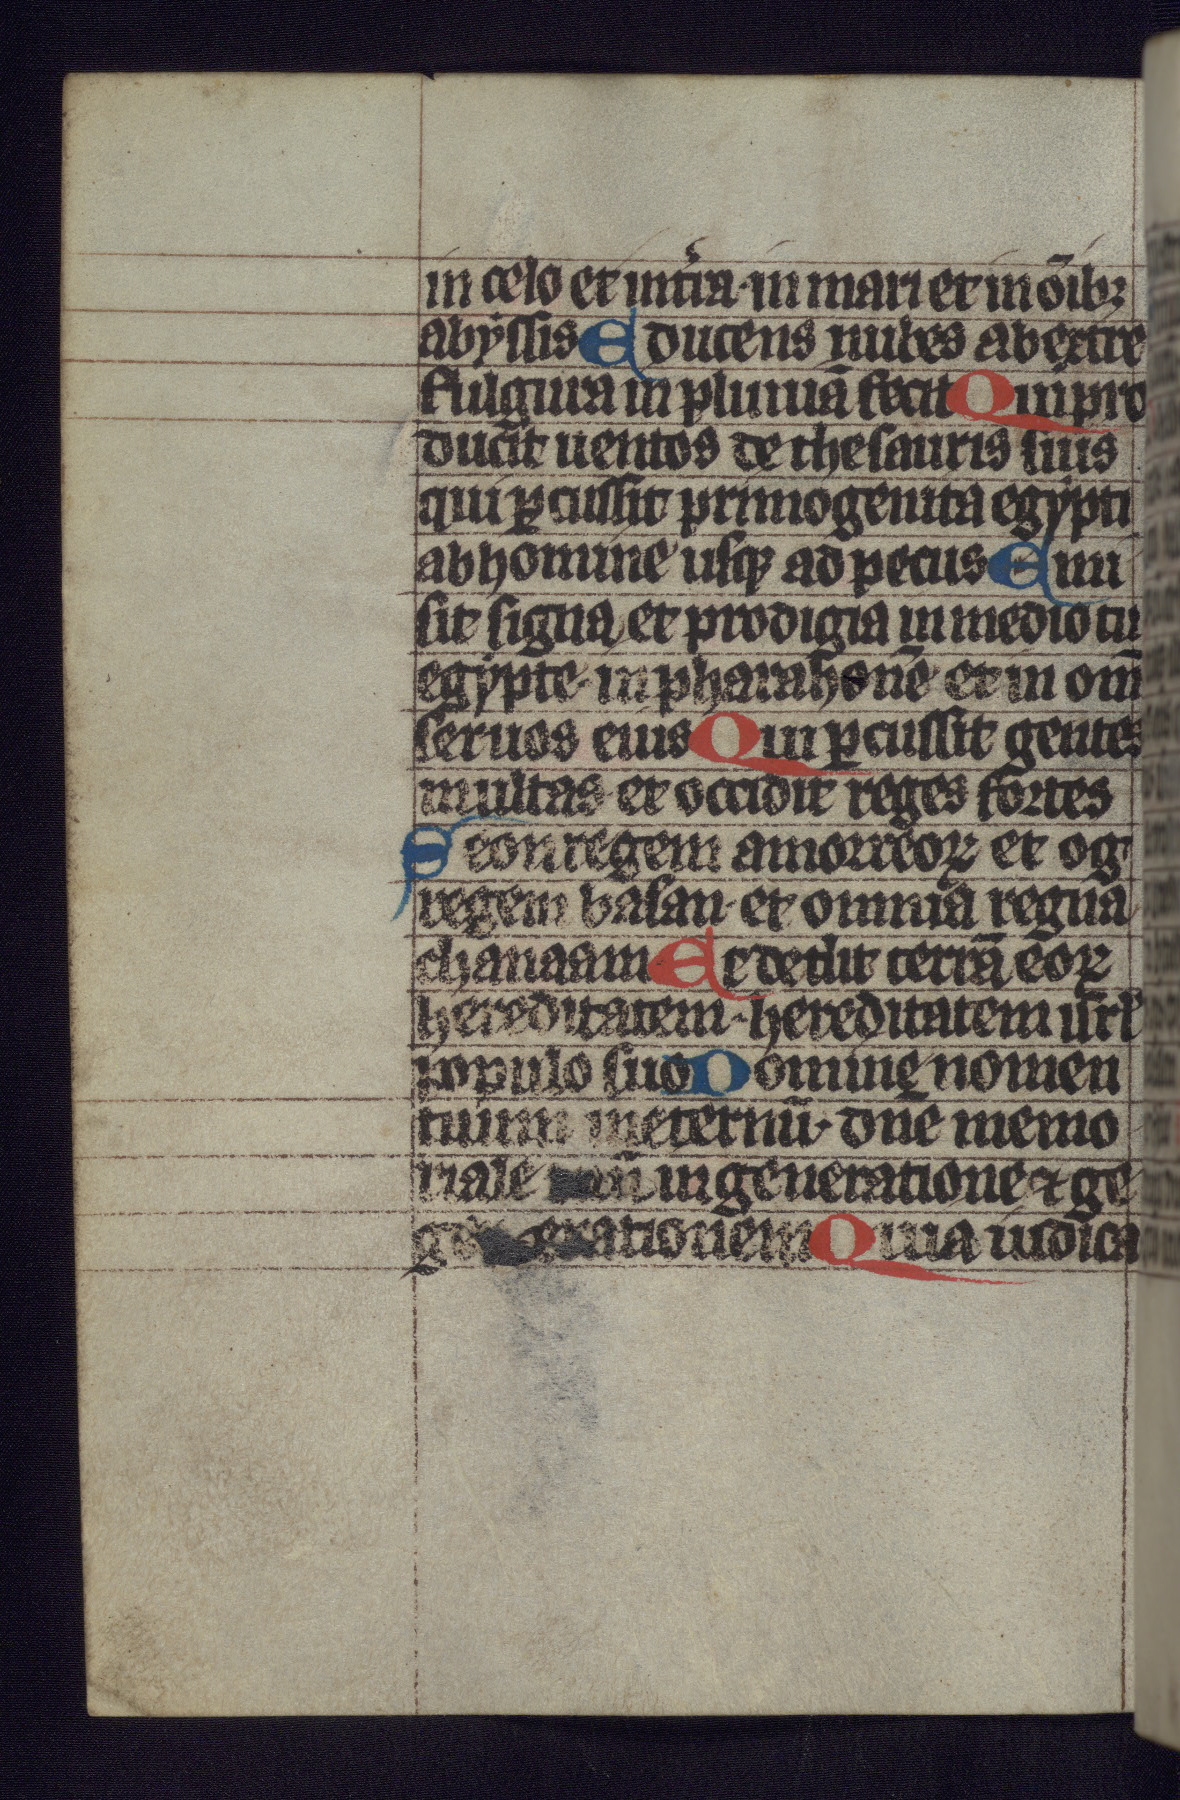 in celo et int̃ra · in mari et in õib⁊
abyssis Educens nubes ab extre
fulgura in pluuiã fecit Qui pro
ducit uentos de thesauris suis
qui ꝑcussit primogenita egypti
ab homine usqꝫ ad pecus Emi
sit signa et prodigia in medio tui
egypte · in pharahonẽ et in om̃
seruos eius Qui ꝑcussit gentes
multas et occidit reges fortes
Seon regem amorreoꝝ et og
regem basan · et omnia regna
chanaam Et dedit terrã eoꝝ
hereditatem · hereditatem isrl̃
populo suo Domine nomen
tuum in eternũ · dñe memo
riale in generatione ⁊ ge
generationem Quia iudica